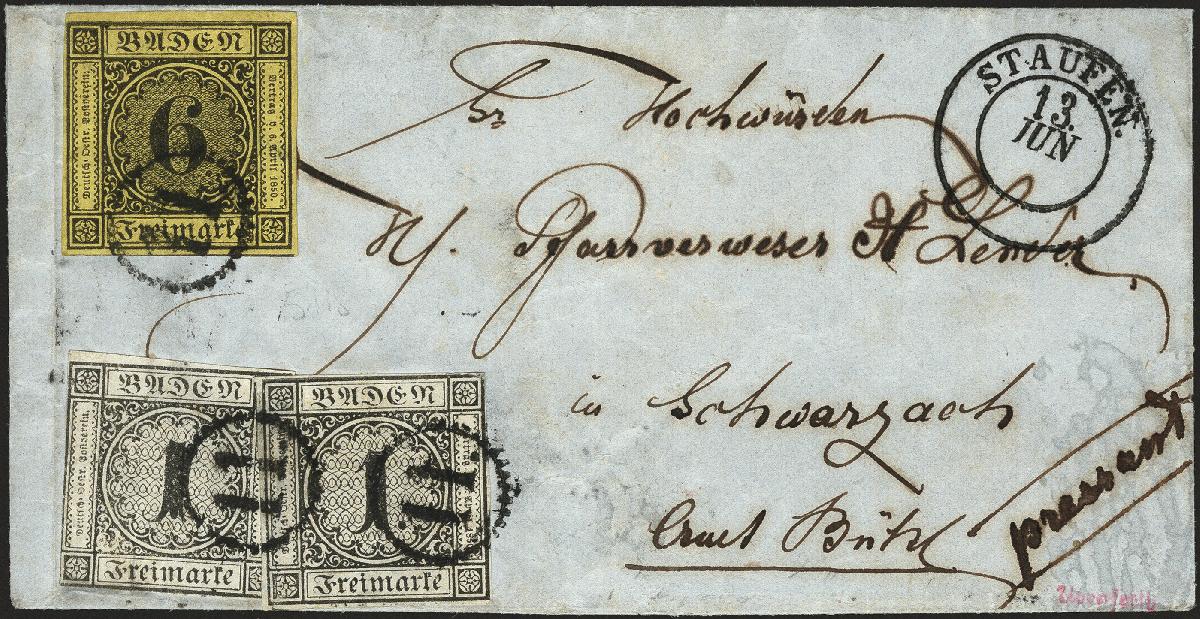 BADEN
Deutsch-Oestr. Postverein.
6
Vertrag v. 6. April 1850.
Freimarke
STAUFEN.
13.
JUN
Sr Hochwürden
H. Pfarrverweser Lender
in Schwarzach
Amt Bühl
pressant
BADEN
Deutsch-Oestr. Postverein.
1
Freimarke
BADEN
1
Freimarke